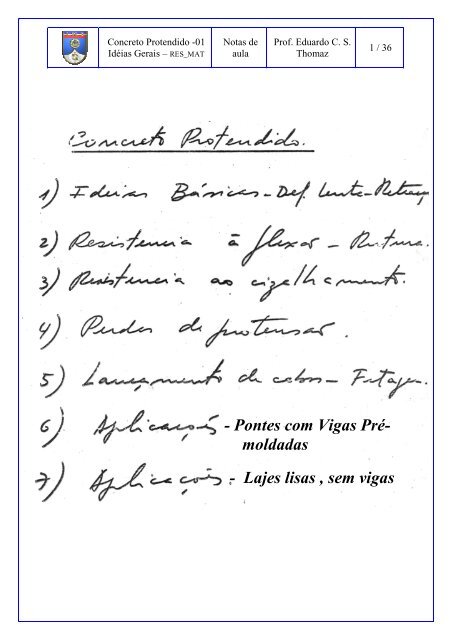 Concreto Protendido -01
Idéias Gerais – RES_MAT
Notas de
aula
Prof. Eduardo C. S.
Thomaz
1 / 36
Concreto Protendido.
1) Ideias Básicas - Def. lenta - Retraç
2) Resistencia à flexão - Rutura.
3) Resistencia ao cizelhamento.
4) Perdas de protensão.
5) Lançamento de cabos - Fretagem.
6) Aplicações - Pontes com Vigas Pré-
moldadas
7) Aplicações - Lajes lisas , sem vigas